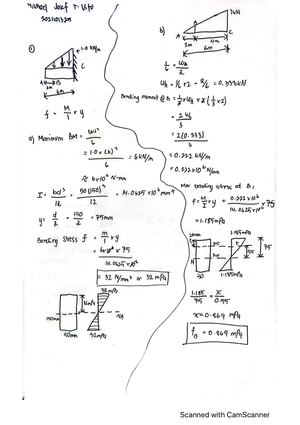 ①
1.0 kN/m
A B C
2m
6m
f = M/I × y
a) Maximum BM = WL²/6
= 1.0 × (6)²/6 = 6 kN/m
≈ 6×10⁶ N-mm
I = bd³/12 = 50(150)³/12 = 14.0625×10⁶ mm⁴
y = d/2 = 150/2 = 75mm
Bending Stress f = m/I × y
= 6×10⁶ × 75
14.0625×10⁶
= 32 N/mm² or 32 mPa
32 mPa
150mm
N/A
50mm
32mPa
b)
1kN
A C
2m 4m
6m
1/6 = WB/2
WB = 1/6 × 2 = 2/6 = 0.333kN
Bending moment @ B = 1/2 × WB × 2 (1/3 × 2)
= 2WB/3
= 2(0.333)/3
= 0.222 kN/m
= 0.222×10⁶ N-mm
Max bending stress at B,
f = M/I × y = 0.222×10⁶/14.0625×10⁶ × 75
= 1.185 mPa
1.185mPa
1.185/75 = x/0.55
x = 0.869 mPa
fB = 0.869 mPa
Scanned with CamScanner